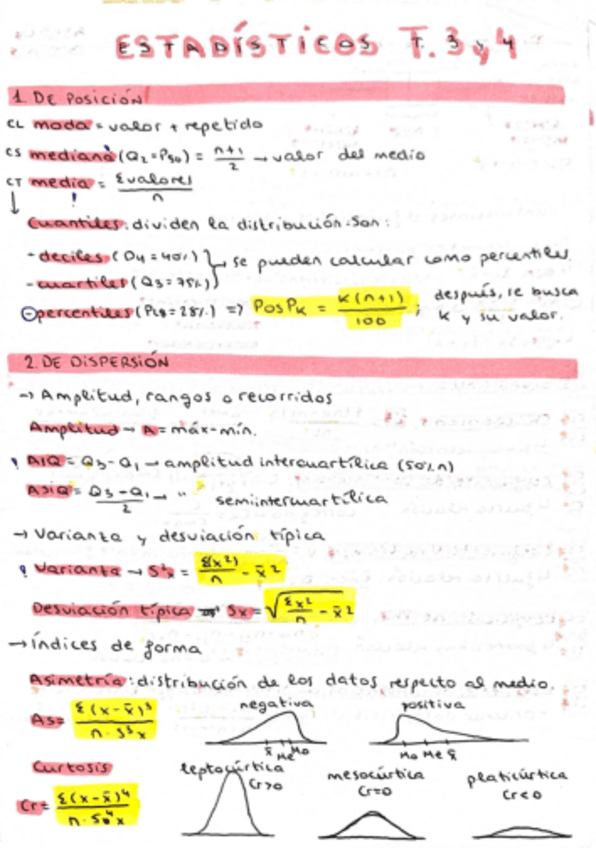 ESTADÍSTICOS T. 3 y 4
1. DE POSICIÓN
CL moda = valor + repetido
CS mediana (Q₂ = P₅₀) = n+1/2 → valor del medio
CT media = Σvalores/n
↓ !
Cuantiles: dividen la distribución. Son:
- deciles (D4 = 40%) } se pueden calcular como percentiles
- cuartiles (Q3 = 75%)
- percentiles (P28 = 28%) => PosPₖ = K(n+1)/100 ; después, se busca
K y su valor.
2. DE DISPERSIÓN
→ Amplitud, rangos o recorridos
Amplitud → A = máx - mín.
! AIQ = Q₃ - Q₁ → amplitud intercuartílica (50% n)
ASIQ = Q₃ - Q₁/2 → " semiintercuartílica
→ Varianza y desviación típica
! Varianza → S²x = Σ(x²)/n - x̄²
Desviación típica Sx = √Σx²/n - x̄²
→ Índices de forma
Asimetría: distribución de los datos respecto al medio.
negativa positiva
As = Σ(x-x̄)³/n·S³x
x̄ Me Mo Mo Me x̄
Curtosis leptocúrtica mesocúrtica platicúrtica
Cr>0 Cr=0 Cr<0
Cr = Σ(x-x̄)⁴/n·S⁴x